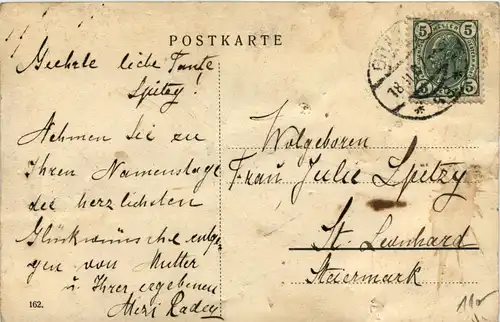 POSTKARTE
Geehrte liebe Tante
Spitzy!
Nehmen Sie zu
Ihren Namenstage
die herzlichsten
Glückwünsche entge-
gen von Mutter
u Ihrer ergebenen
Mezi Radey
162.
Wolgeboren
Frau Julie Spitzy
St. Leonhard
Steiermark
5 5
5 5
18.